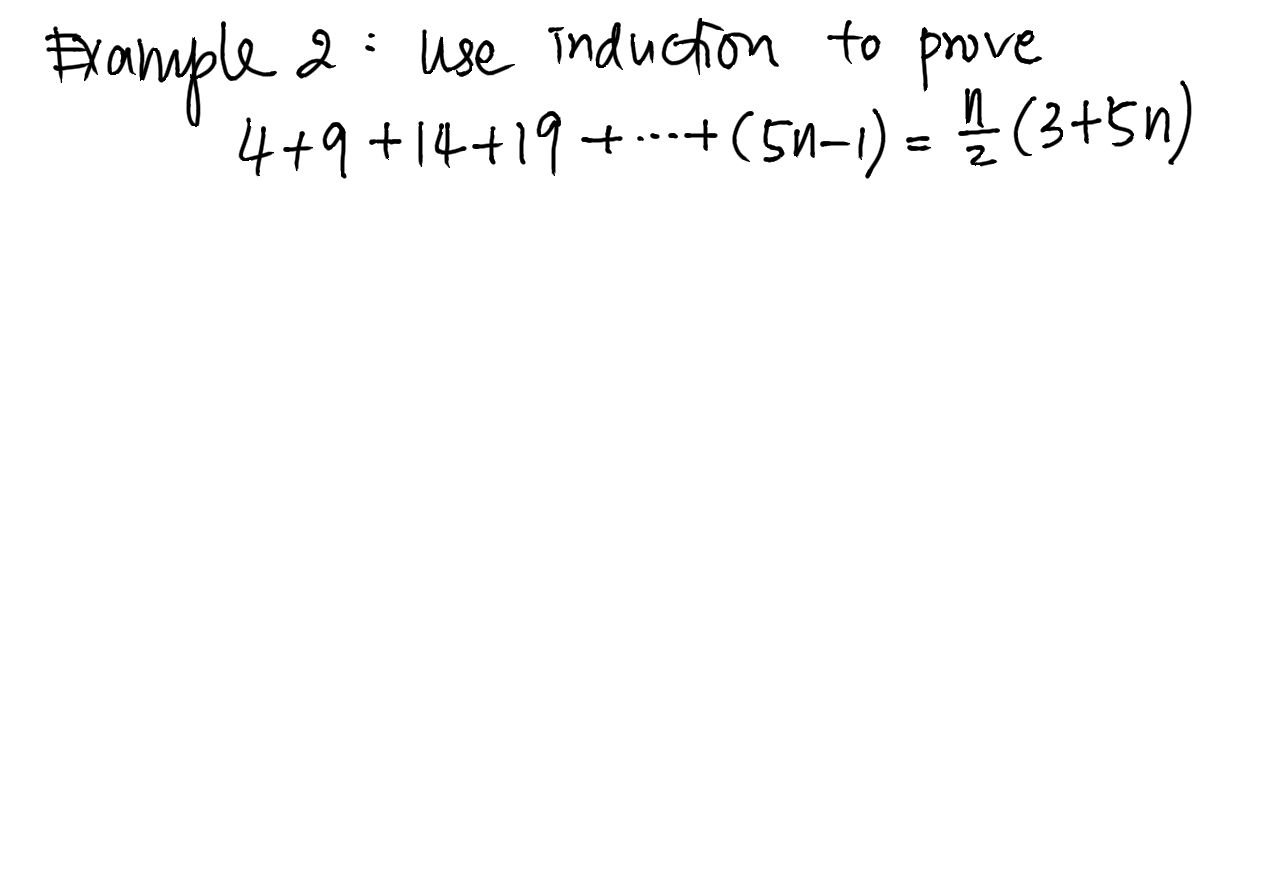 Example 2 : Use induction to prove
4+9+14+19+···+(5n-1) = n/2 (3+5n)